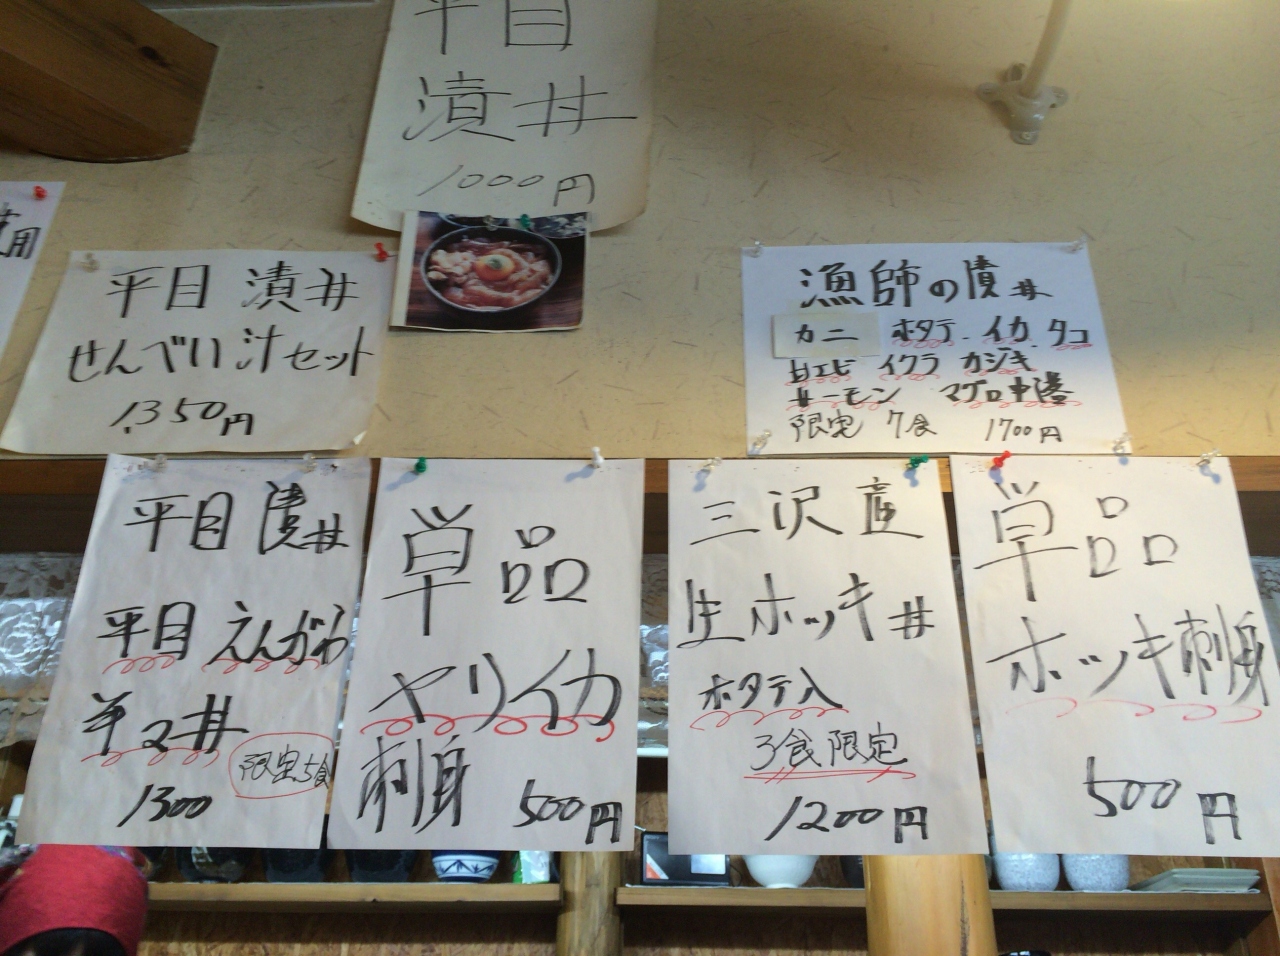 平目
漬丼
1000円
用
平目 漬丼
せんべい汁セット
1,350円
漁師の漬丼
カニ ホタテ イカ タコ
甘エビ イクラ カジキ
サーモン マグロ中落
限定 7食 1700円
平目 漬丼
平目 えんがわ
半々丼
限定5食
1300
単品
ヤリイカ
刺身 500円
三沢産
生ホッキ丼
ホタテ入
3食限定
1200円
単品
ホッキ刺身
500円